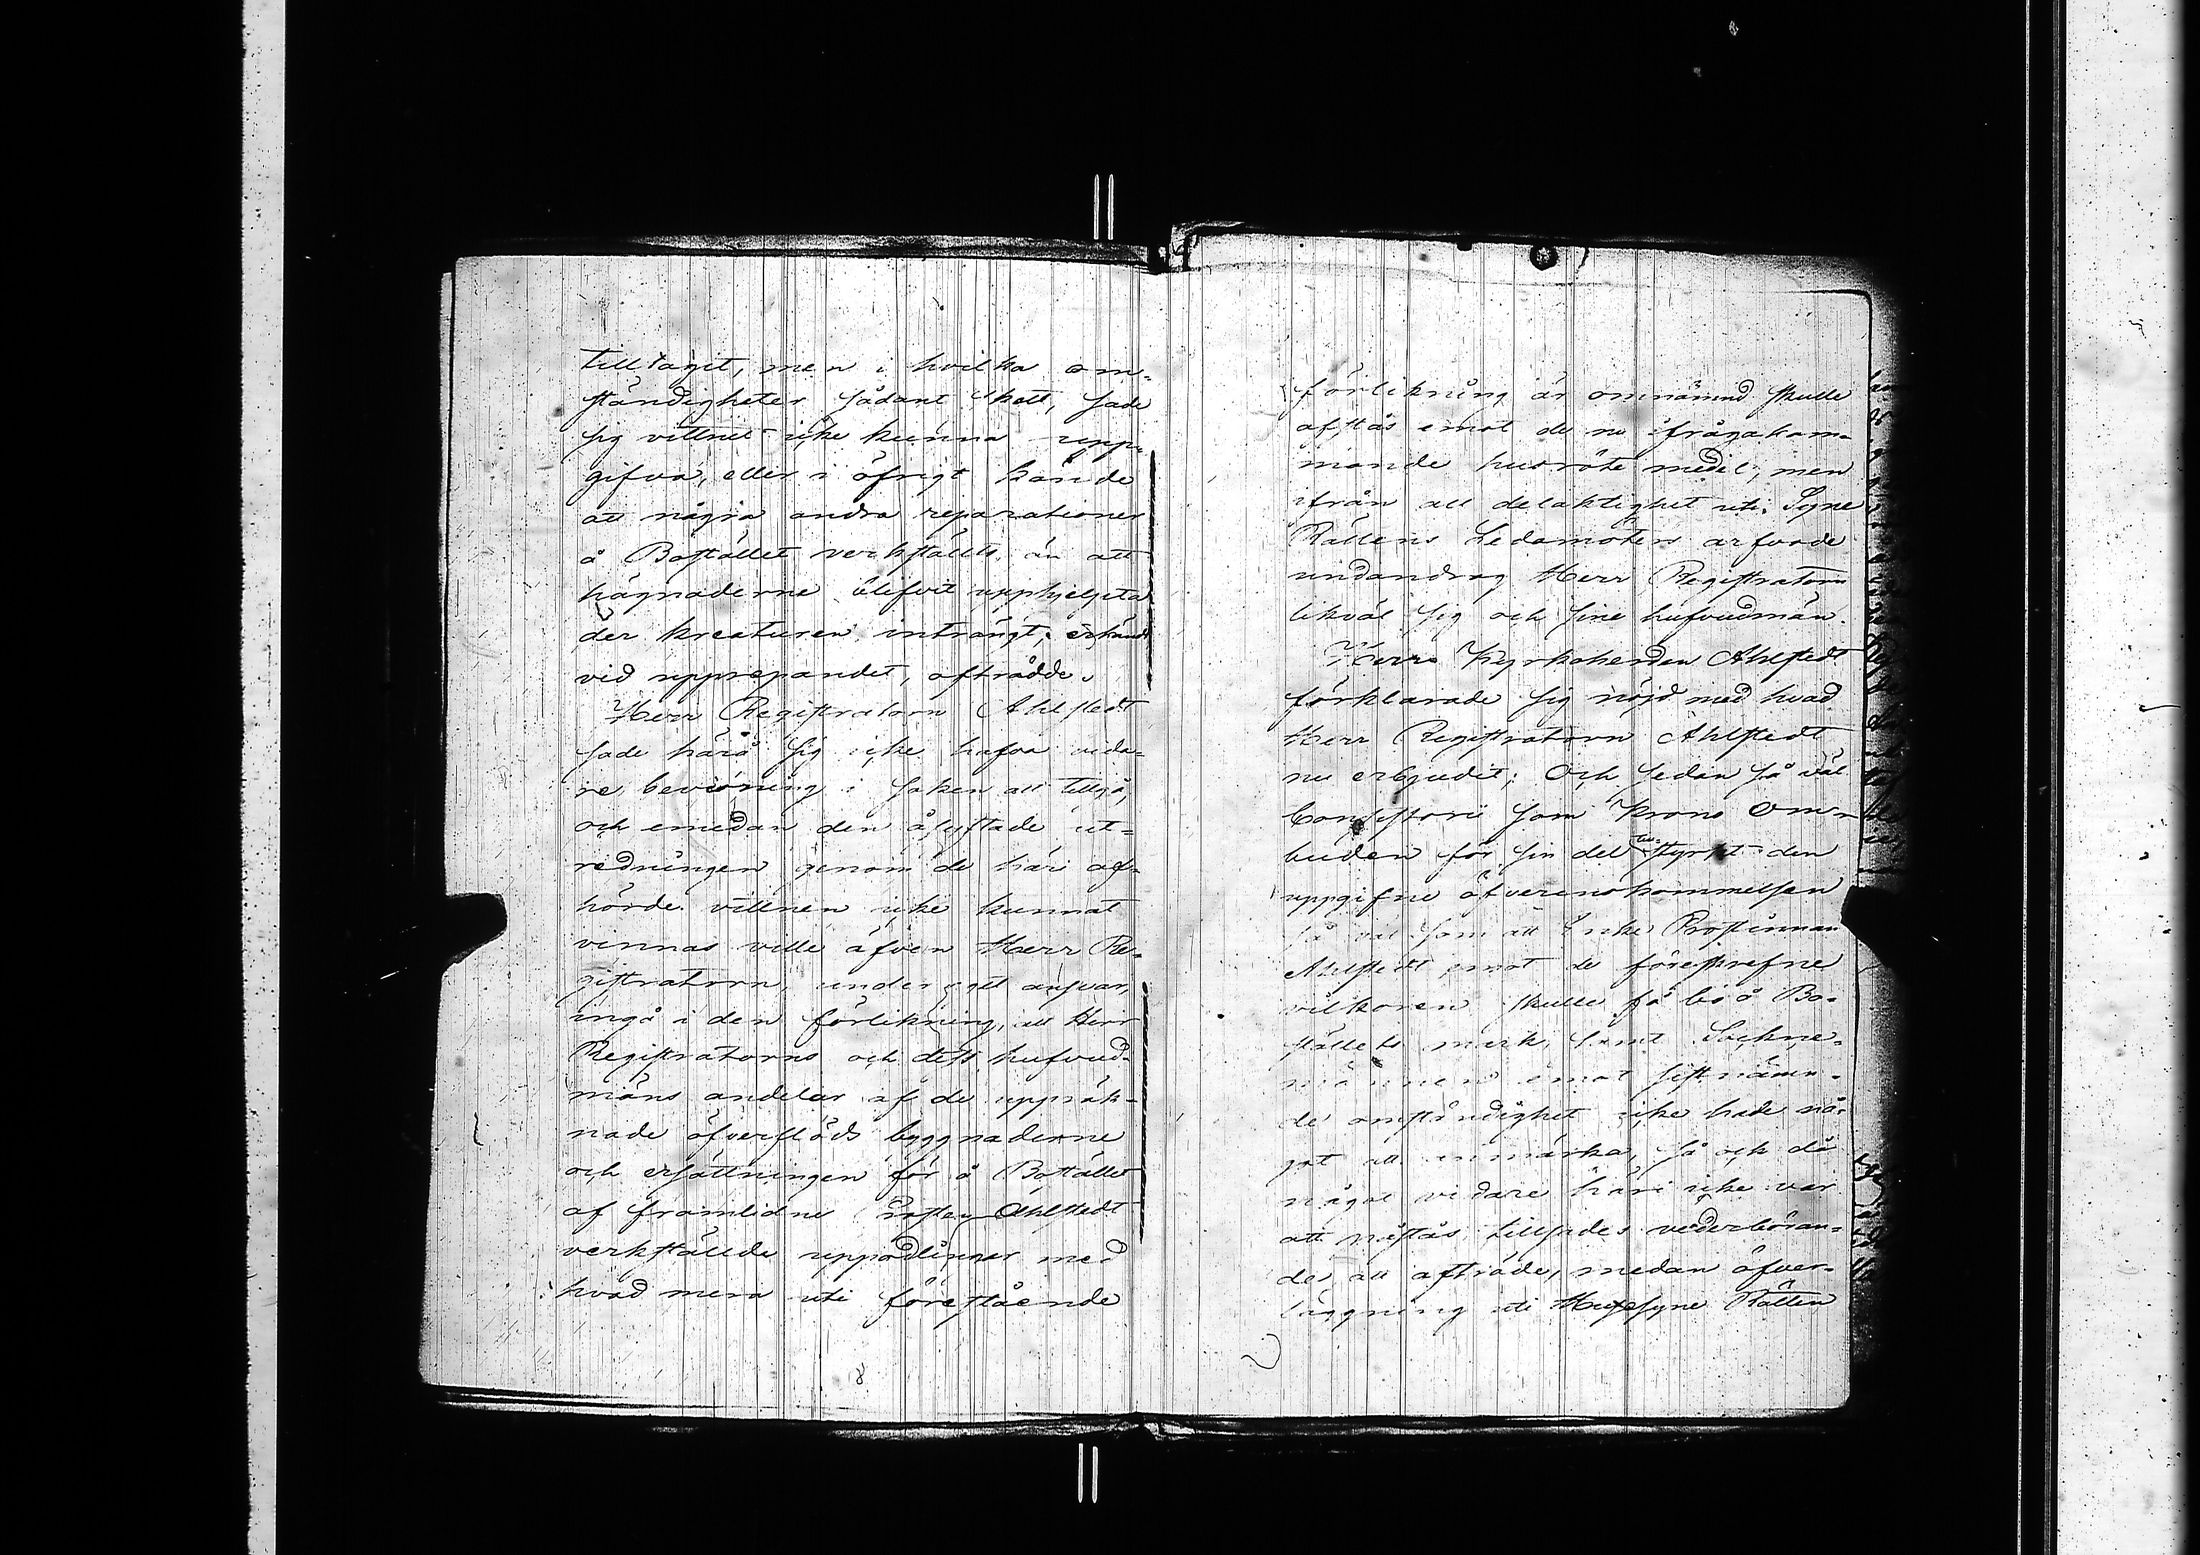 tilltaget, men i hvilka om-
ständigheter sådant skett, sade
sig vittnet icke kunna upp-
gifva, eller i öfrigt kände
att några andra reparationer
å Bostället verkställts än att
hägnaderne blifvit upphjelpta
der kreaturen inträngt; erkände
vid upprepandet, afträdde.
Herr Registratorn Ahlstedt
sade härå sig icke hafva vida-
re bevisning i saken att tillgå,
och emedan den åsyftade ut-
redningen genom de häri af-
hörde vittnen icke kunnat
vinnas ville äfven Herr Re-
gistratorn, under eget ansvar,
ingå i den förlikning, att Herr
Registratorns och dess hufvud-
mäns andelar af de uppräk-
nade öfverflöds byggnaderne
och ersättningen för å Bostället
af framlidne Prosten Ahlstedt
verkställde uppodlingar med
hvad mera uti föreståènde
8
förlikning är omnämnd skulle
afstås emot de nu ifrågakom-
mande husröte medel; men
ifrån all delaktighet uti Syne
Rättens Ledamöters arfvode
undandrog Herr Registratorn
likväl sig och sine hufvudmän.
Herr Kyrkoherden Ahlstedt
förklarade sig nöjd med hvad
Herr Registratorn Ahlstedt
nu erbjudit; Och sedan så väl
Consistorii som Krono Om-
buden för sin del tillstyrkt den
uppgifne öfverenskommelsen
så väl som att Enke Prostinnan
Ahlstedt emot de föreskrefne
vilkoren skulle få bo å Bo-
ställets mark, samt Sockne-
männen emot sistnämn-
de omständighet icke hade nå-
got att anmärka, så och då
något vidare häri icke var
att påstås, tillsades vederböran-
de att afträde, medan öfver-
läggning uti Husesyne Rätten